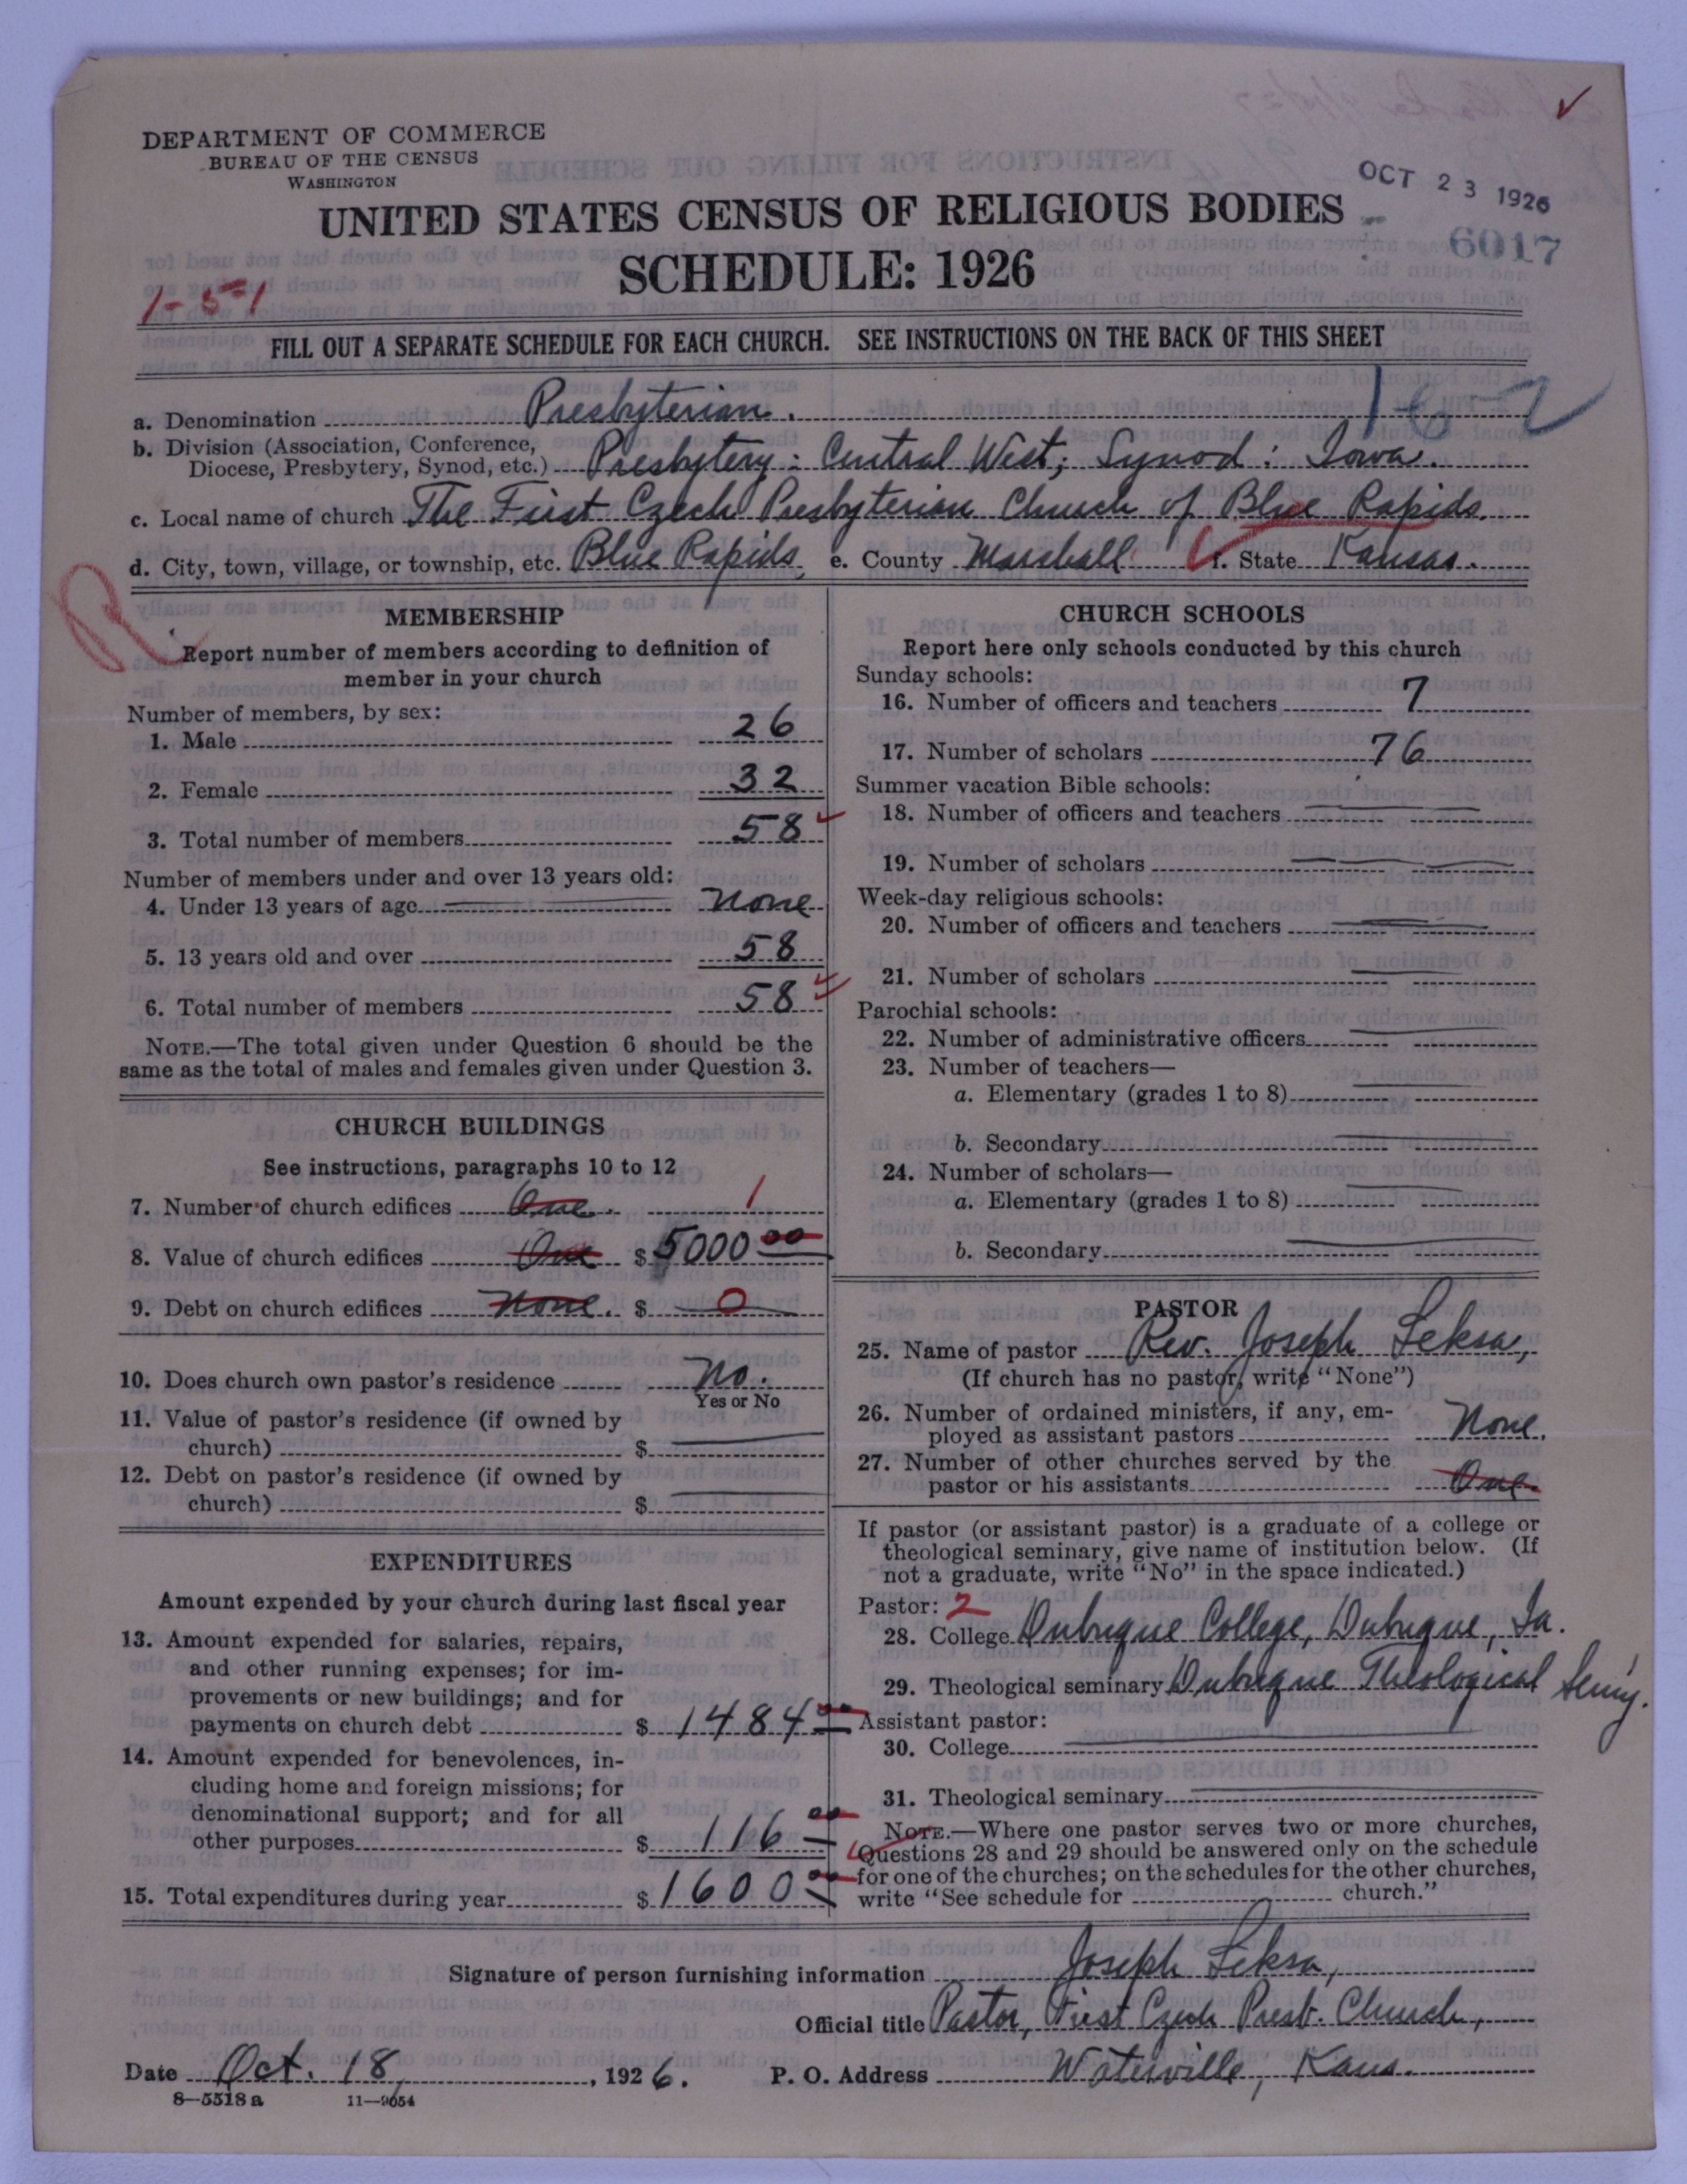 DEPARTMENT OF COMMERCE
BUREAU OF THE CENSUS
WASHINGTON
OCT 23 1926
UNITED STATES CENSUS OF RELIGIOUS BODIES
6017
SCHEDULE: 1926
1-51
FILL OUT A SEPARATE SCHEDULE FOR EACH CHURCH. SEE INSTRUCTIONS ON THE BACK OF THIS SHEET
16-2
a. Denomination Presbyterian.
b. Division (Association, Conference,
Diocese, Presbytery, Synod, etc.) Presbytery: Central West; Synod: Iowa.
c. Local name of church The First Czech Presbyterian Church of Blue Rapids.
d. City, town, village, or township, etc. Blue Rapids, e. County Marshall f. State Kansas.
MEMBERSHIP
Report number of members according to definition of
member in your church
Number of members, by sex:
1. Male 26
2. Female 32
3. Total number of members 58
Number of members under and over 13 years old:
4. Under 13 years of age None
5. 13 years old and over 58
6. Total number of members 58
NOTE.—The total given under Question 6 should be the
same as the total of males and females given under Question 3.
CHURCH BUILDINGS
See instructions, paragraphs 10 to 12
7. Number of church edifices One. 1
8. Value of church edifices One $ 5000 00
9. Debt on church edifices None. $ 0
10. Does church own pastor's residence No.
Yes or No
11. Value of pastor's residence (if owned by
church) $
12. Debt on pastor's residence (if owned by
church) $
EXPENDITURES
Amount expended by your church during last fiscal year
13. Amount expended for salaries, repairs,
and other running expenses; for im-
provements or new buildings; and for
payments on church debt $ 1484 00
14. Amount expended for benevolences, in-
cluding home and foreign missions; for
denominational support; and for all
other purposes $ 116 00
15. Total expenditures during year $ 1600 00
CHURCH SCHOOLS
Report here only schools conducted by this church
Sunday schools:
16. Number of officers and teachers 7
17. Number of scholars 76
Summer vacation Bible schools:
18. Number of officers and teachers
19. Number of scholars
Week-day religious schools:
20. Number of officers and teachers
21. Number of scholars
Parochial schools:
22. Number of administrative officers
23. Number of teachers—
a. Elementary (grades 1 to 8)
b. Secondary
24. Number of scholars—
a. Elementary (grades 1 to 8)
b. Secondary
PASTOR
25. Name of pastor Rev. Joseph Leksa,
(If church has no pastor, write "None")
26. Number of ordained ministers, if any, em-
ployed as assistant pastors None.
27. Number of other churches served by the
pastor or his assistants One.
If pastor (or assistant pastor) is a graduate of a college or
theological seminary, give name of institution below. (If
not a graduate, write "No" in the space indicated.)
Pastor: 2
28. College Dubuque College, Dubuque, Ia.
29. Theological seminary Dubuque Theological Sem'y.
Assistant pastor:
30. College
31. Theological seminary
NOTE.—Where one pastor serves two or more churches,
Questions 28 and 29 should be answered only on the schedule
for one of the churches; on the schedules for the other churches,
write "See schedule for church."
Signature of person furnishing information Joseph Leksa,
Official title Pastor, First Czech Presb. Church,
Date Oct. 18, 1926. P. O. Address Waterville, Kans.
8—5518 a 11—9054